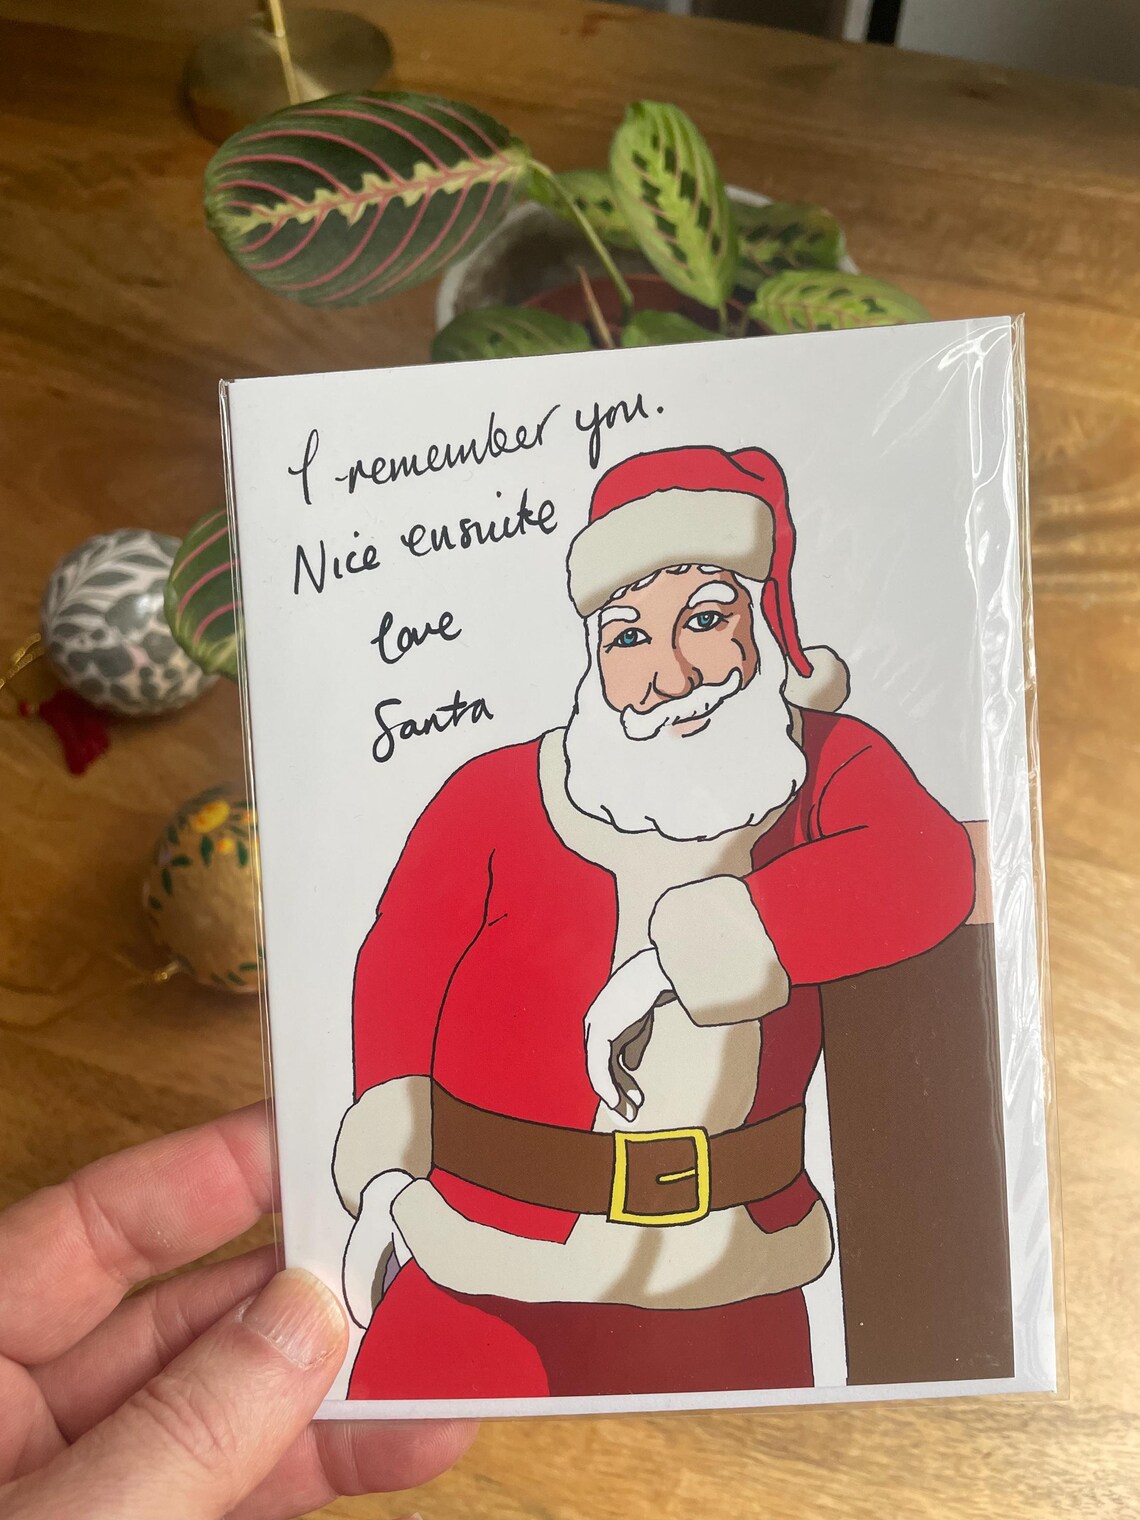 I remember you.
Nice ensuite
love
Santa